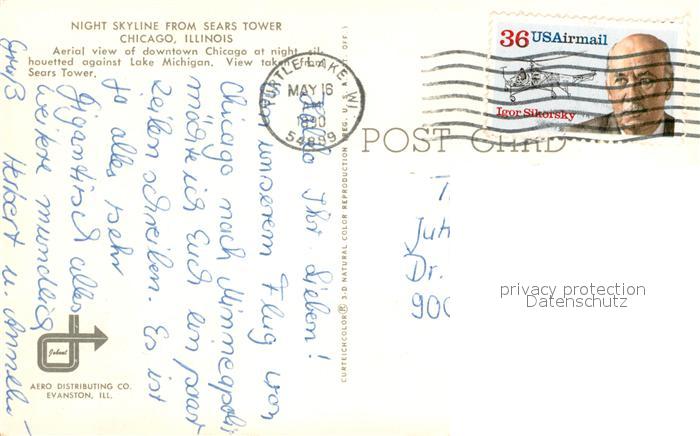 NIGHT SKYLINE FROM SEARS TOWER
CHICAGO, ILLINOIS
Aerial view of downtown Chicago at night sil-
houetted against Lake Michigan. View taken from
Sears Tower.
TURTLE LAKE, WI
MAY 16
1990
54889
36 USAirmail
Igor Sikorsky
POST CARD
Hallo Ihr Lieben!
Von unserem Flug von
Chicago nach Minneapolis
möchte ich Euch ein paar
Zeilen schreiben. Es ist
ja alles sehr
gigantisch alles
weitere mündlich
Gruß Herbert u. Annelie
CURTEICHCOLOR® 3-D NATURAL COLOR REPRODUCTION (REG. U.S.A. PAT. OFF.)
Juh
Dr.
900
privacy protection
Datenschutz
AERO DISTRIBUTING CO.
EVANSTON, ILL.